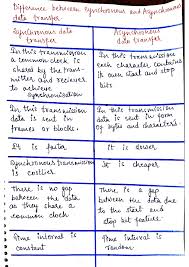 Difference between Synchronous and Asynchronous
data transfer
Synchronous
data transfer
Asynchronous
data transfer
In this transmission
a common clock is
shared by the trans-
mitter and reciever
to achieve
synchronisation
In this transmission
each character contains
it own start and stop
bits
In this transmission
data is sent in
frames or blocks.
In this transmission
data is sent in form
of bytes and characters.
It is faster
It is slower
Synchronous transmission
is costlier
It is cheaper
There is no gap
between the data
as they share a
common clock
There is a gap
between the data due
to the start and
stop bit feature.
Time interval is
constant
Time interval is
random